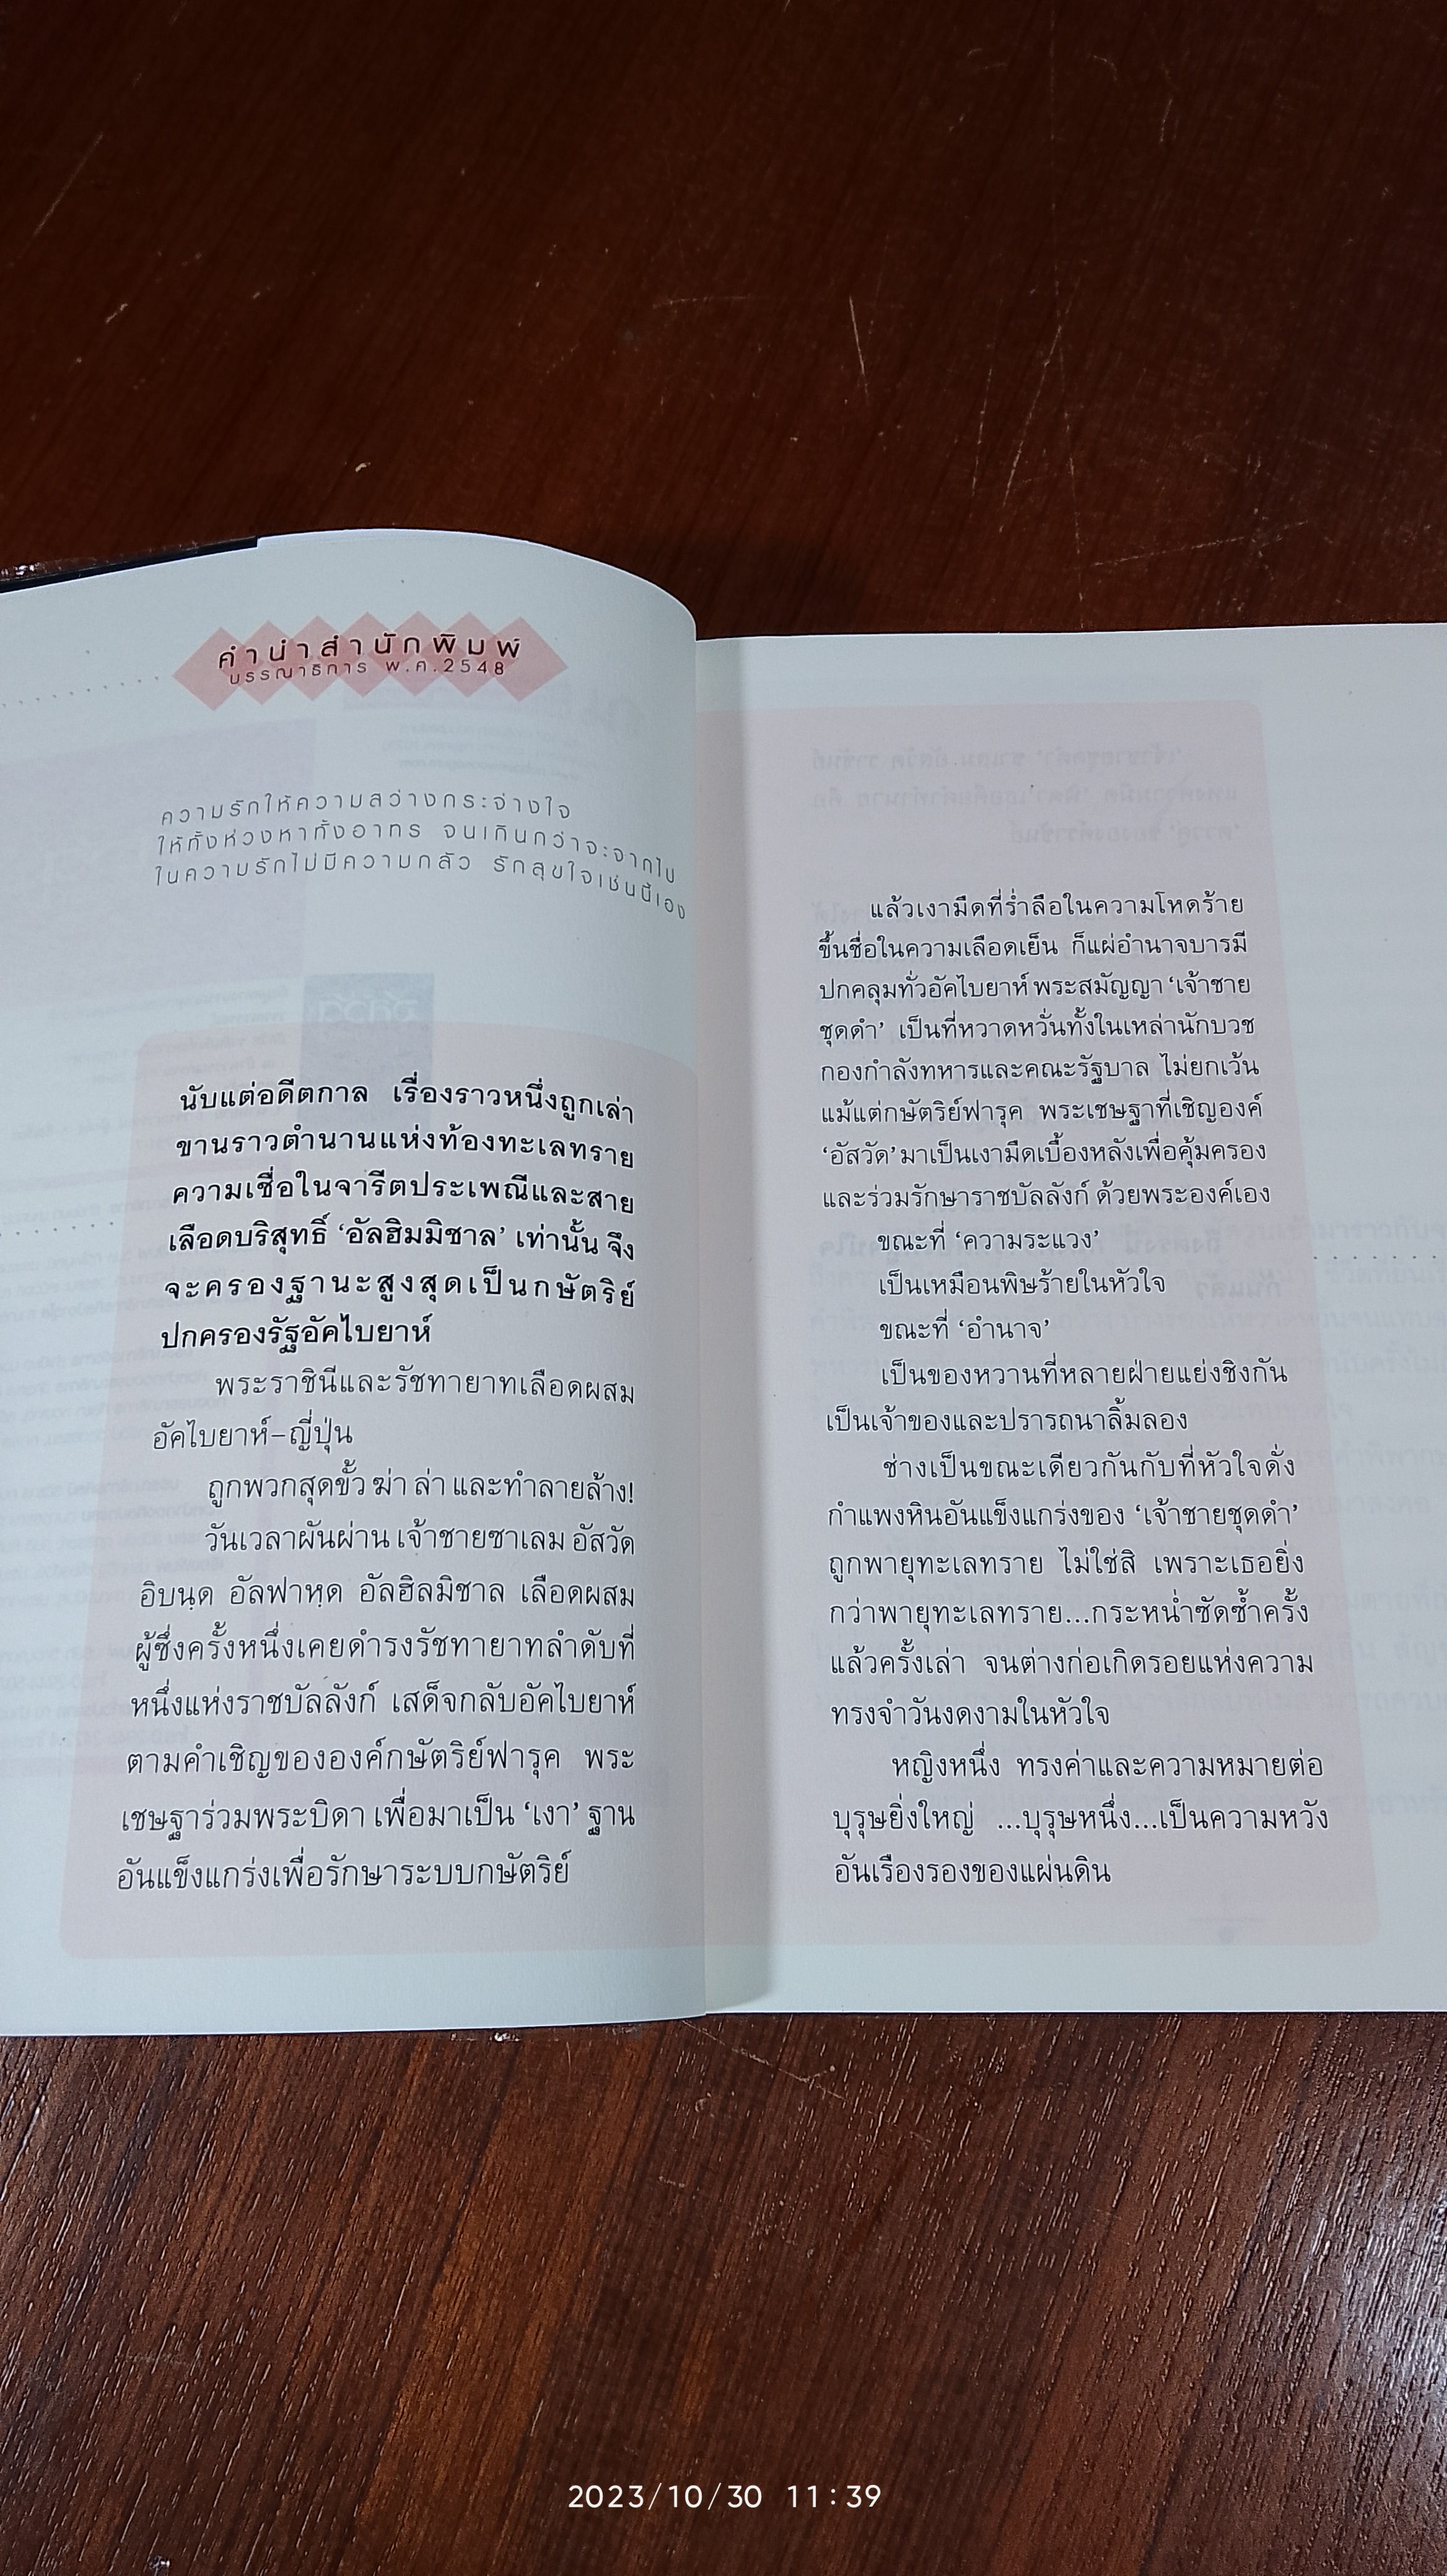 คำนำสำนักพิมพ์
บรรณาธิการ พ.ศ.2548
ความรักให้ความสว่างกระจ่างใจ
ให้ทั้งห่วงหาทั้งอาทร จนเกินกว่าจะจากไป
ในความรักไม่มีความกลัว รักสุขใจเช่นนี้เอง
นับแต่อดีตกาล เรื่องราวหนึ่งถูกเล่า
ขานราวตำนานแห่งท้องทะเลทราย
ความเชื่อในจารีตประเพณีและสาย
เลือดบริสุทธิ์ ‘อัลฮิมมิชาล’ เท่านั้น จึง
จะครองฐานะสูงสุดเป็นกษัตริย์
ปกครองรัฐอัคไบยาห์
พระราชินีและรัชทายาทเลือดผสม
อัคไบยาห์–ญี่ปุ่น
ถูกพวกสุดขั้ว ฆ่า ล่า และทำลายล้าง!
วันเวลาผันผ่าน เจ้าชายซาเลม อัสวัด
อิบนฺด อัลฟาหฺด อัลฮิลมิชาล เลือดผสม
ผู้ซึ่งครั้งหนึ่งเคยดำรงรัชทายาทลำดับที่
หนึ่งแห่งราชบัลลังก์ เสด็จกลับอัคไบยาห์
ตามคำเชิญขององค์กษัตริย์ฟารุค พระ
เชษฐาร่วมพระบิดา เพื่อมาเป็น ‘เงา’ ฐาน
อันแข็งแกร่งเพื่อรักษาระบบกษัตริย์
แล้วเงามืดที่ร่ำลือในความโหดร้าย
ขึ้นชื่อในความเลือดเย็น ก็แผ่อำนาจบารมี
ปกคลุมทั่วอัคไบยาห์ พระสมัญญา ‘เจ้าชาย
ชุดดำ’ เป็นที่หวาดหวั่นทั้งในเหล่านักบวช
กองกำลังทหารและคณะรัฐบาล ไม่ยกเว้น
แม้แต่กษัตริย์ฟารุค พระเชษฐาที่เชิญองค์
‘อัสวัด’ มาเป็นเงามืดเบื้องหลังเพื่อคุ้มครอง
และร่วมรักษาราชบัลลังก์ ด้วยพระองค์เอง
ขณะที่ ‘ความระแวง’
เป็นเหมือนพิษร้ายในหัวใจ
ขณะที่ ‘อำนาจ’
เป็นของหวานที่หลายฝ่ายแย่งชิงกัน
เป็นเจ้าของและปรารถนาลิ้มลอง
ช่างเป็นขณะเดียวกันกับที่หัวใจดั่ง
กำแพงหินอันแข็งแกร่งของ ‘เจ้าชายชุดดำ’
ถูกพายุทะเลทราย ไม่ใช่สิ เพราะเธอยิ่ง
กว่าพายุทะเลทราย...กระหน่ำซัดซ้ำครั้ง
แล้วครั้งเล่า จนต่างก่อเกิดรอยแห่งความ
ทรงจำวันงดงามในหัวใจ
หญิงหนึ่ง ทรงค่าและความหมายต่อ
บุรุษยิ่งใหญ่ ...บุรุษหนึ่ง...เป็นความหวัง
อันเรืองรองของแผ่นดิน
2023/10/30 11:39